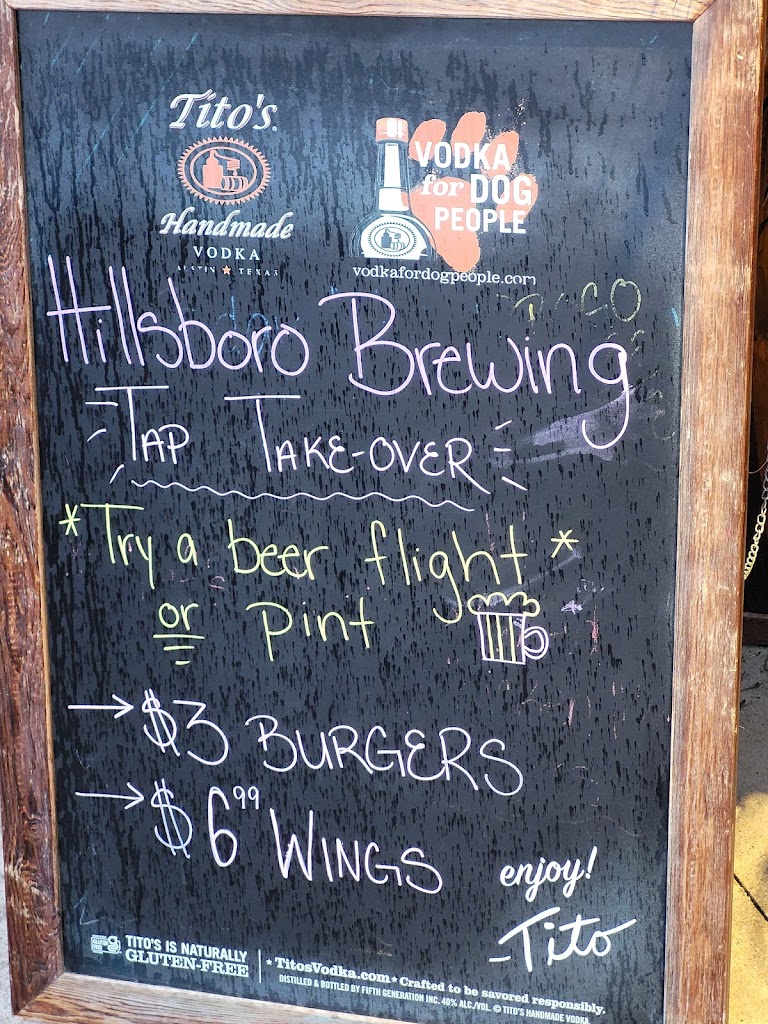 Tito's
Handmade
VODKA
AUSTIN ★ TEXAS
VODKA
for DOG
PEOPLE
vodkafordogpeople.com
Hillsboro Brewing
TAP TAKE-OVER
*Try a beer flight*
or pint
→ $3 BURGERS
→ $6.99 WINGS
enjoy!
-Tito
TITO'S IS NATURALLY
GLUTEN-FREE
★ TitosVodka.com ★ Crafted to be savored responsibly.
DISTILLED & BOTTLED BY FIFTH GENERATION INC. 40% ALC./VOL. © TITO'S HANDMADE VODKA